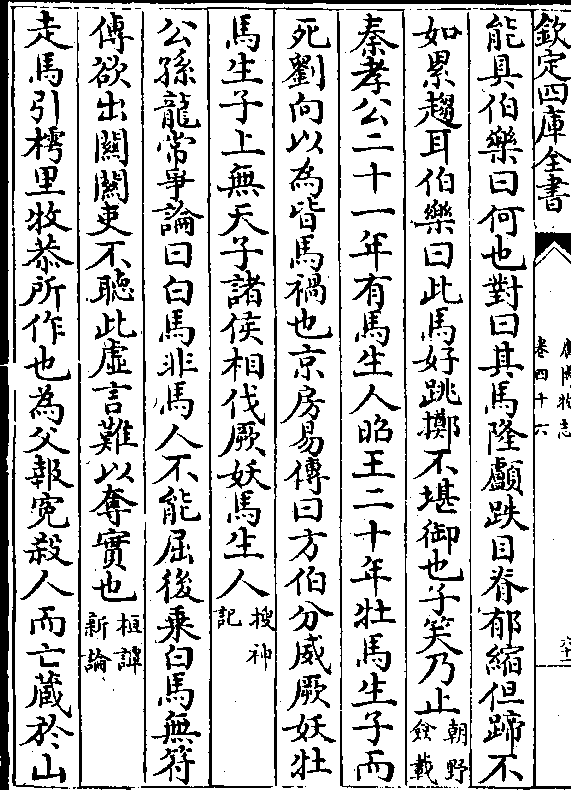 欽定四庫全書
廣博物志
卷四十六
能具伯樂曰何也對曰其馬隆顱跌目脊郁縮但蹄不
如累趨耳伯樂曰此馬好跳擲不堪御也子笑乃止朝野僉載
秦孝公二十一年有馬生人昭王二十年牡馬生子而
死劉向以為皆馬禍也京房易傳曰方伯分威厥妖牡
馬生子上無天子諸侯相伐厥妖馬生人搜神記
公孫龍常爭論曰白馬非馬人不能屈後乗白馬無符
傳欲出關關吏不聽此虛言難以奪實也桓譚新論
走馬引樗里牧恭所作也為父報寃殺人而亡藏於山